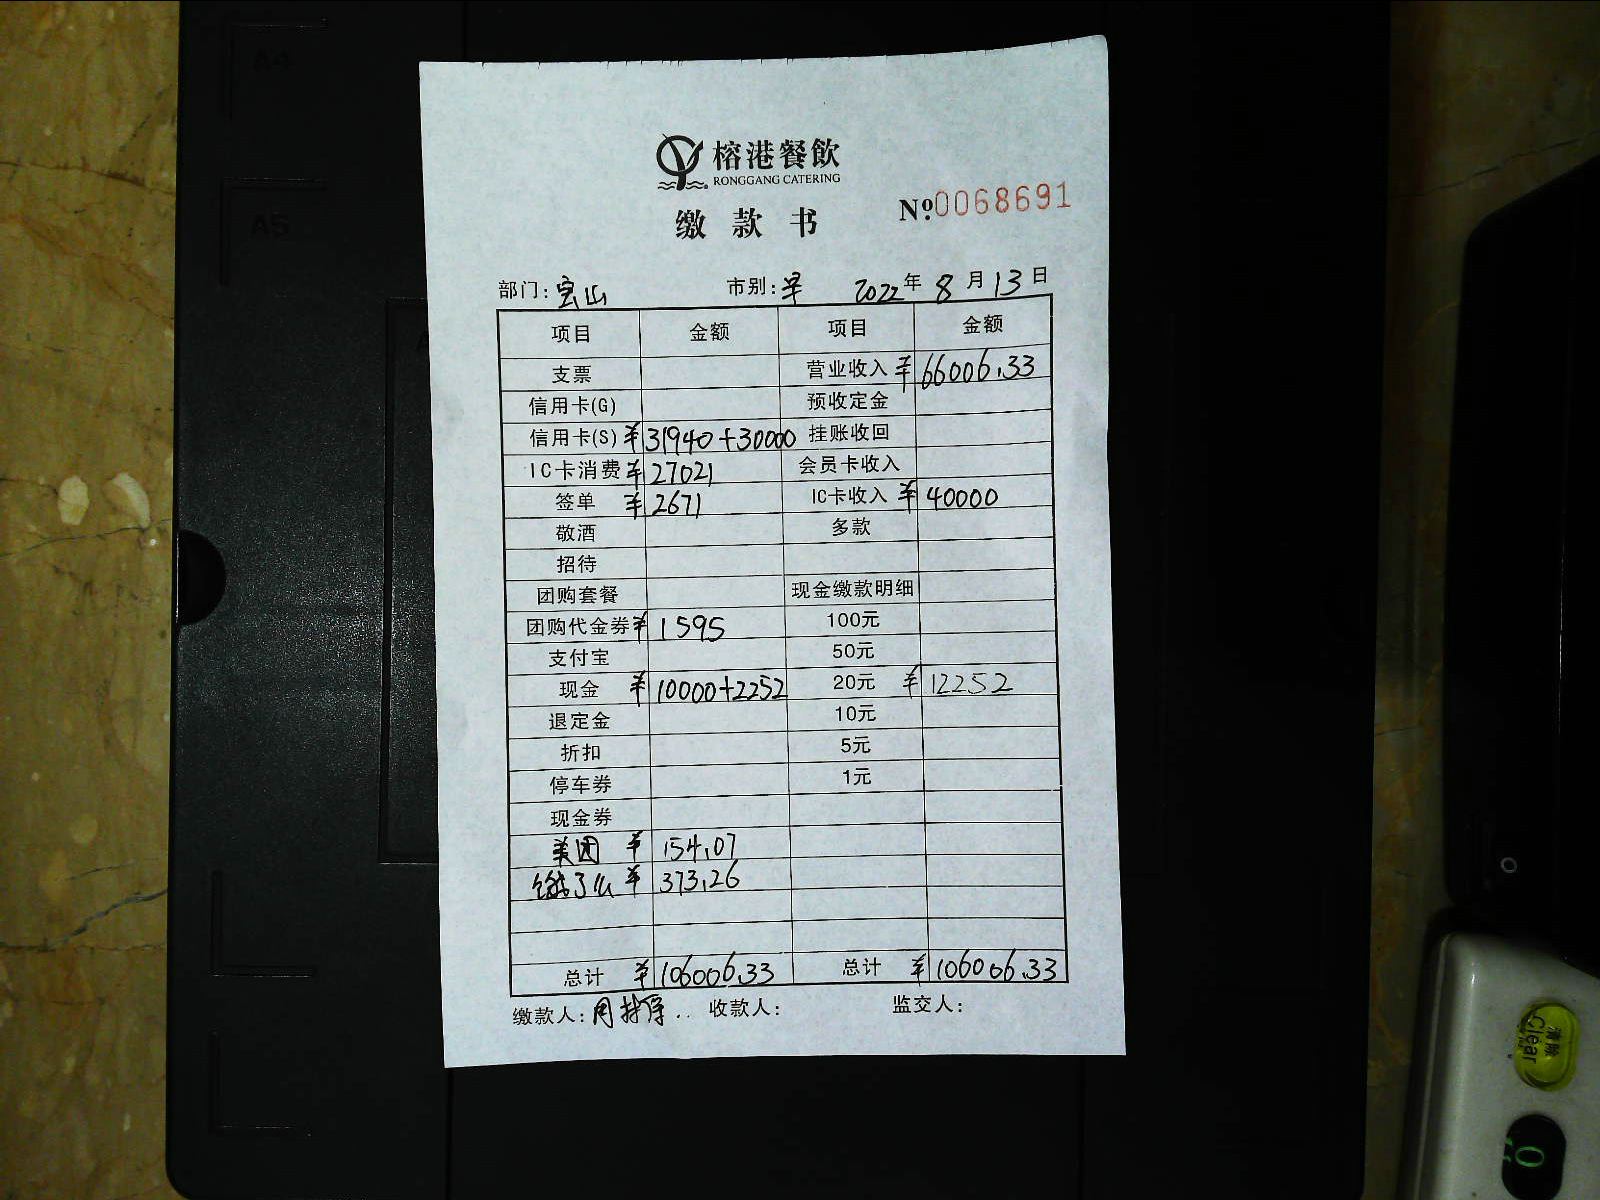 A4
A5
榕港餐飲
RONGGANG CATERING
缴款书 №0068691
部门:宝山 市别:早 2022年8月13日
项目 金额 项目 金额
支票 营业收入 ¥66006.33
信用卡(G) 预收定金
信用卡(S) ¥31940+30000 挂账收回
IC卡消费 ¥27021 会员卡收入
签单 ¥2671 IC卡收入 ¥40000
敬酒 多款
招待
团购套餐 现金缴款明细
团购代金券 ¥1595 100元
支付宝 50元
现金 ¥10000+2252 20元 ¥12252
退定金 10元
折扣 5元
停车券 1元
现金券
美团 ¥154.07
饿了么 ¥373.26
总计 ¥106006.33 总计 ¥106006.33
缴款人: 收款人: 监交人:
清除
Clear
0